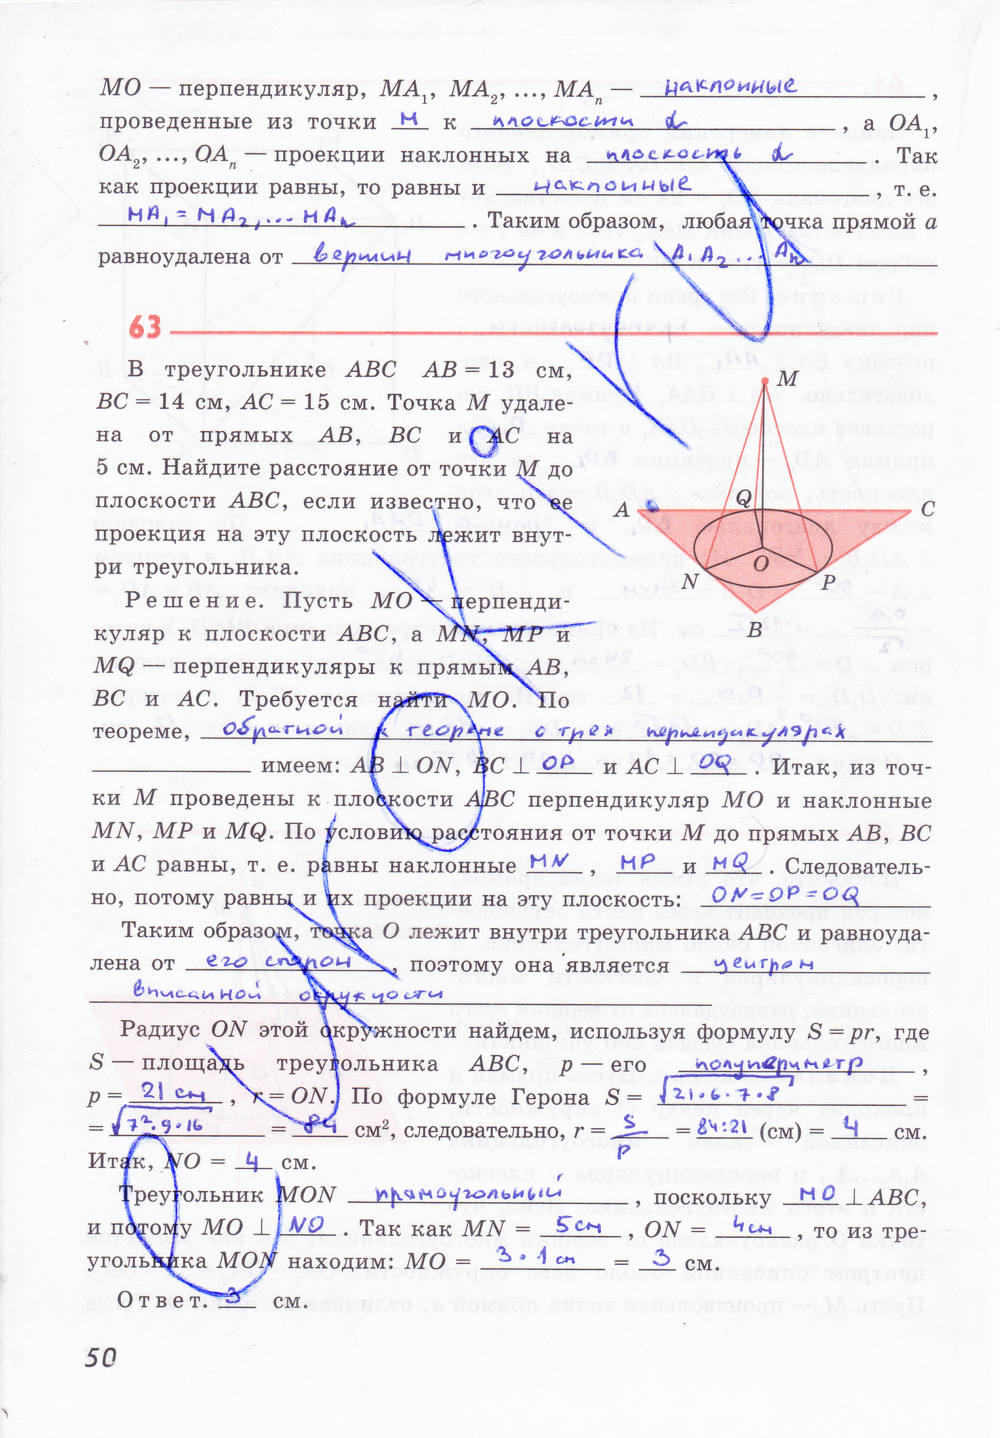 MO — перпендикуляр, MA₁, MA₂, ..., MAₙ — наклонные,
проведенные из точки M к плоскости α, а OA₁,
OA₂, ..., OAₙ — проекции наклонных на плоскость α. Так
как проекции равны, то равны и наклонные, т. е.
MA₁ = MA₂, ... MAₙ. Таким образом, любая точка прямой a
равноудалена от вершин многоугольника A₁A₂...Aₙ
63
В треугольнике ABC AB = 13 см,
BC = 14 см, AC = 15 см. Точка M удале-
на от прямых AB, BC и AC на
5 см. Найдите расстояние от точки M до
плоскости ABC, если известно, что ее
проекция на эту плоскость лежит внут-
ри треугольника.
M
A
Q
C
O
N
P
B
Решение. Пусть MO — перпенди-
куляр к плоскости ABC, а MN, MP и
MQ — перпендикуляры к прямым AB,
BC и AC. Требуется найти MO. По
теореме, обратной к теореме о трех перпендикулярах
имеем: AB ⊥ ON, BC ⊥ OP и AC ⊥ OQ. Итак, из точ-
ки M проведены к плоскости ABC перпендикуляр MO и наклонные
MN, MP и MQ. По условию расстояния от точки M до прямых AB, BC
и AC равны, т. е. равны наклонные MN, MP и MQ. Следователь-
но, потому равны и их проекции на эту плоскость: ON=OP=OQ
Таким образом, точка O лежит внутри треугольника ABC и равноуда-
лена от его сторон, поэтому она является центром
вписанной окружности
Радиус ON этой окружности найдем, используя формулу S = pr, где
S — площадь треугольника ABC, p — его полупериметр,
p = 21 см, r = ON. По формуле Герона S = √21·6·7·8 =
= √7²·9·16 = 84 см², следовательно, r = S/p = 84:21 (см) = 4 см.
Итак, NO = 4 см.
Треугольник MON прямоугольный, поскольку MO ⊥ ABC,
и потому MO ⊥ NO. Так как MN = 5 см ON = 4 см то из тре-
угольника MON находим: MO = 3·1 см = 3 см.
Ответ. 3 см.
50